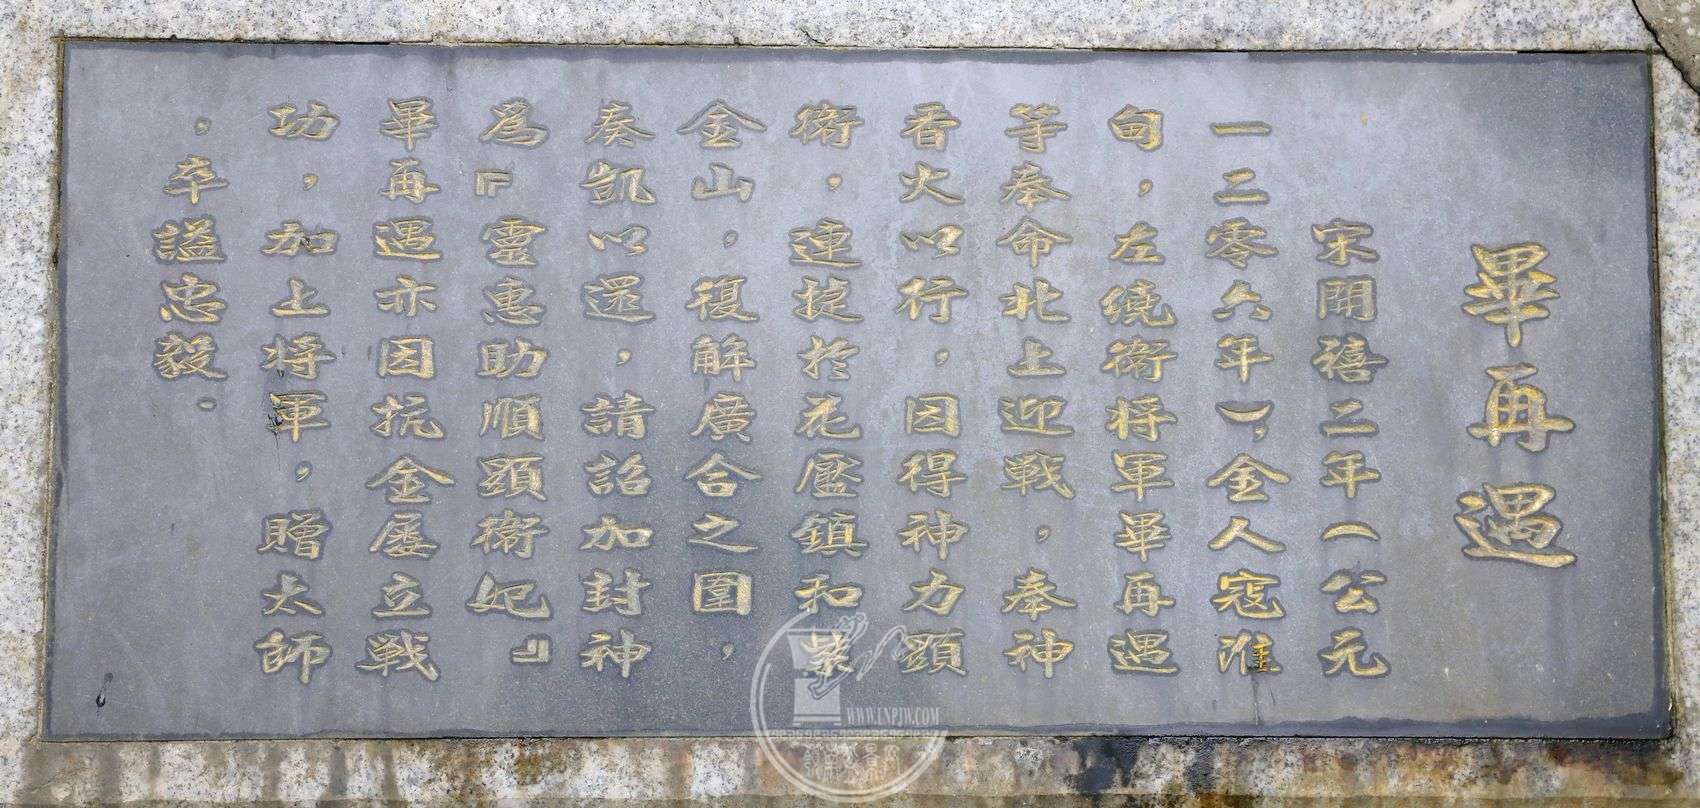 畢再遇
宋開禧二年（公元
一二零六年），金人寇淮
甸，左繞衛将軍畢再遇
等奉命北上迎戰，奉神
香火以行，因得神力顕
衛，連捷於花靨鎮和紫
金山，復解廣合之圍，
奏凱以還，請詔加封神
爲『靈惠助順顕衛妃』
畢再遇亦因抗金屡立戰
功，加上将軍，贈太師
，卒謚忠毅。
WWW.LNPJW.COM